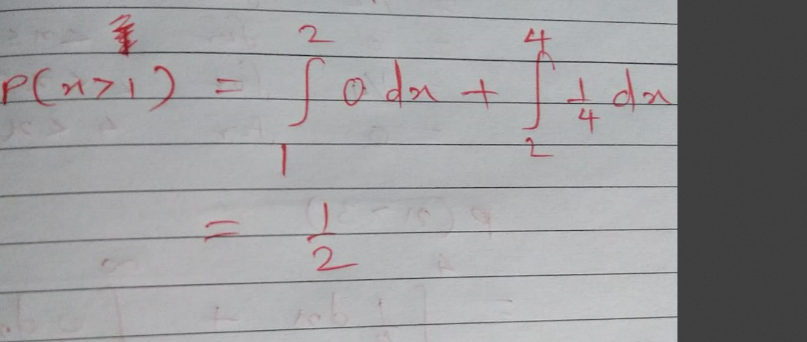 P(x>1) = ∫₁² 0 dx + ∫₂⁴ 1/4 dx
= 1/2